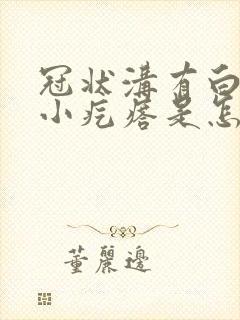 冠状溝有白
小疙瘩是怎
董麗邊